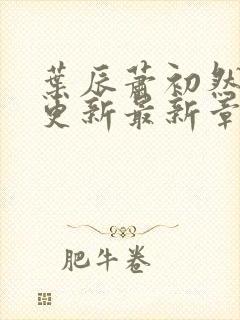 葉辰蕭初然
更新最新章
肥牛卷